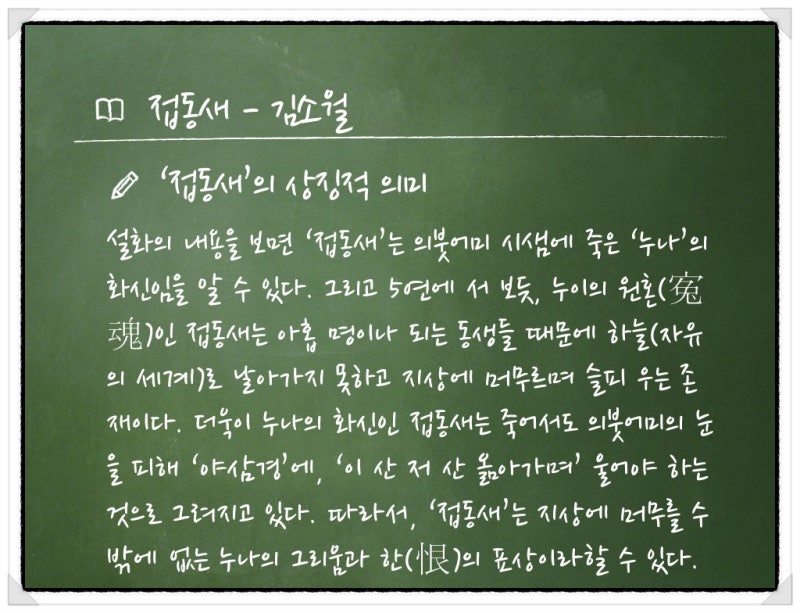 접동새 - 김소월
‘접동새’의 상징적 의미
설화의 내용을 보면 ‘접동새’는 의붓어미 시샘에 죽은 ‘누나’의
화신임을 알 수 있다. 그리고 5연에 서 보듯, 누이의 원혼(冤
魂)인 접동새는 아홉 명이나 되는 동생들 때문에 하늘(자유
의 세계)로 날아가지 못하고 지상에 머무르며 슬피 우는 존
재이다. 더욱이 누나의 화신인 접동새는 죽어서도 의붓어미의 눈
을 피해 ‘야삼경’에, ‘이 산 저 산 옮아가며’ 울어야 하는
것으로 그려지고 있다. 따라서, ‘접동새’는 지상에 머무를 수
밖에 없는 누나의 그리움과 한(恨)의 표상이라할 수 있다.